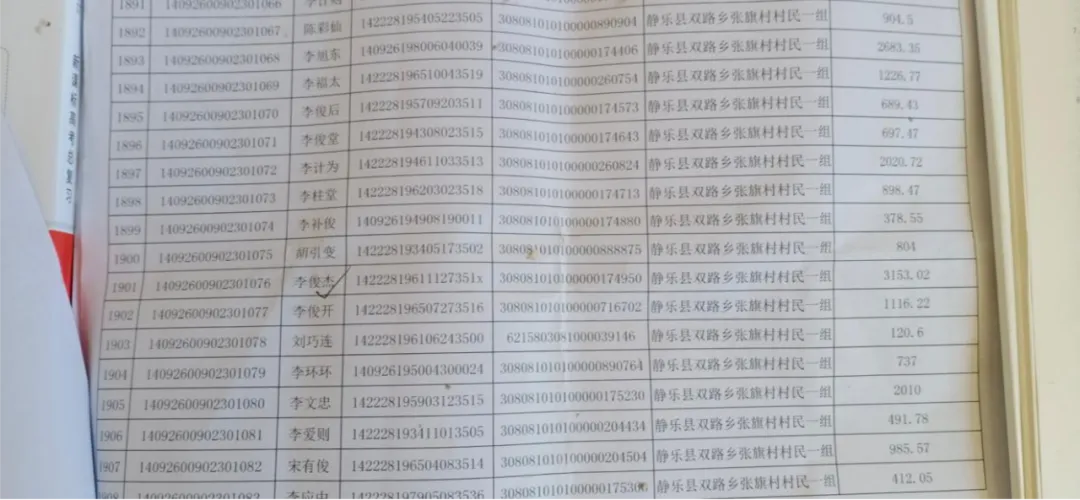 新课标高考总复习
1891 14092600902301066
1892 14092600902301067 陈彩仙 142228195405223505 308081010100000890904 静乐县双路乡张旗村村民一组 904.5
1893 14092600902301068 李旭东 140926198006040039 308081010100000174406 静乐县双路乡张旗村村民一组 2683.35
1894 14092600902301069 李福太 142228196510043519 308081010100000260754 静乐县双路乡张旗村村民一组 1226.77
1895 14092600902301070 李俊后 142228195709203511 308081010100000174573 静乐县双路乡张旗村村民一组 689.43
1896 14092600902301071 李俊堂 142228194308023515 308081010100000174643 静乐县双路乡张旗村村民一组 697.47
1897 14092600902301072 李计为 142228194611033513 308081010100000260824 静乐县双路乡张旗村村民一组 2020.72
1898 14092600902301073 李桂堂 142228196203023518 308081010100000174713 静乐县双路乡张旗村村民一组 898.47
1899 14092600902301074 李补俊 140926194908190011 308081010100000174880 静乐县双路乡张旗村村民一组 378.55
1900 14092600902301075 胡引变 142228193405173502 308081010100000888875 静乐县双路乡张旗村村民一组 804
1901 14092600902301076 李俊杰 14222819611127351x 308081010100000174950 静乐县双路乡张旗村村民一组 3153.02
1902 14092600902301077 李俊开 142228196507273516 308081010100000716702 静乐县双路乡张旗村村民一组 1116.22
1903 14092600902301078 刘巧连 142228196106243500 6215803081000039146 静乐县双路乡张旗村村民一组 120.6
1904 14092600902301079 李环环 140926195004300024 308081010100000890764 静乐县双路乡张旗村村民一组 737
1905 14092600902301080 李文忠 142228195903123515 308081010100000175230 静乐县双路乡张旗村村民一组 2010
1906 14092600902301081 李爱则 142228193411013505 308081010100000204434 静乐县双路乡张旗村村民一组 491.78
1907 14092600902301082 宋有俊 142228196504083514 308081010100000204504 静乐县双路乡张旗村村民一组 985.57
14092600902301083 142228197905083536 308081010100000175306 静乐县双路乡张旗村村民一组 412.05